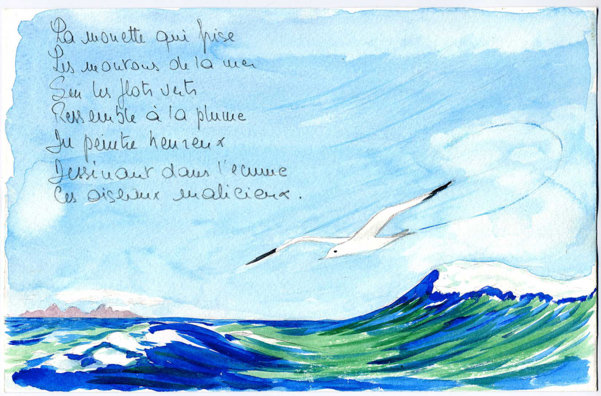 La mouette qui frise
Les moutons de la mer
Sur les flots verts
Ressemble à la plume
Du peintre heureux
Dessinant dans l'écume
Ces oiseaux malicieux.